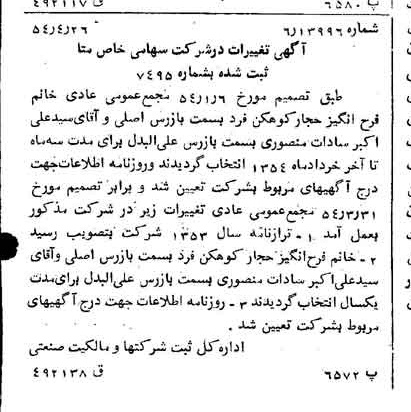 ق ۴۹۲۱۱۷ پ ۶۵۸۰
شماره ۶/۱۳۹۹۶ ۵۴/۴/۲۶
آگهی تغییرات در شرکت سهامی خاص متا
ثبت شده بشماره ۷۴۹۵
طبق تصمیم مورخ ۵۴/۱/۶ مجمع عمومی عادی خانم
فرح انگیز حجار کوهکن فرد بسمت بازرس اصلی و آقای سید علی
اکبر سادات منصوری بسمت بازرس علی‌البدل برای مدت سه‌ماه
تا آخر خرداد ماه ۱۳۵۴ انتخاب گردیدند وروزنامه اطلاعات جهت
درج آگهیهای مربوط بشرکت تعیین شد و برابر تصمیم مورخ
۵۴/۳/۳۱ مجمع عمومی عادی تغییرات زیر در شرکت مذکور
بعمل آمد ۱ـ ترازنامه سال ۱۳۵۳ شرکت بتصویب رسید
۲ـ خانم فرح انگیز حجار کوهکن فرد بسمت بازرس اصلی وآقای
سید علی اکبر سادات منصوری بسمت بازرس علی البدل برای مدت
یکسال انتخاب گردیدند ۳ـ روزنامه اطلاعات جهت درج آگهیهای
مربوط بشرکت تعیین شد .
اداره کل ثبت شرکتها و مالکیت صنعتی
پ ۶۵۷۲ ق ۴۹۲۱۳۸